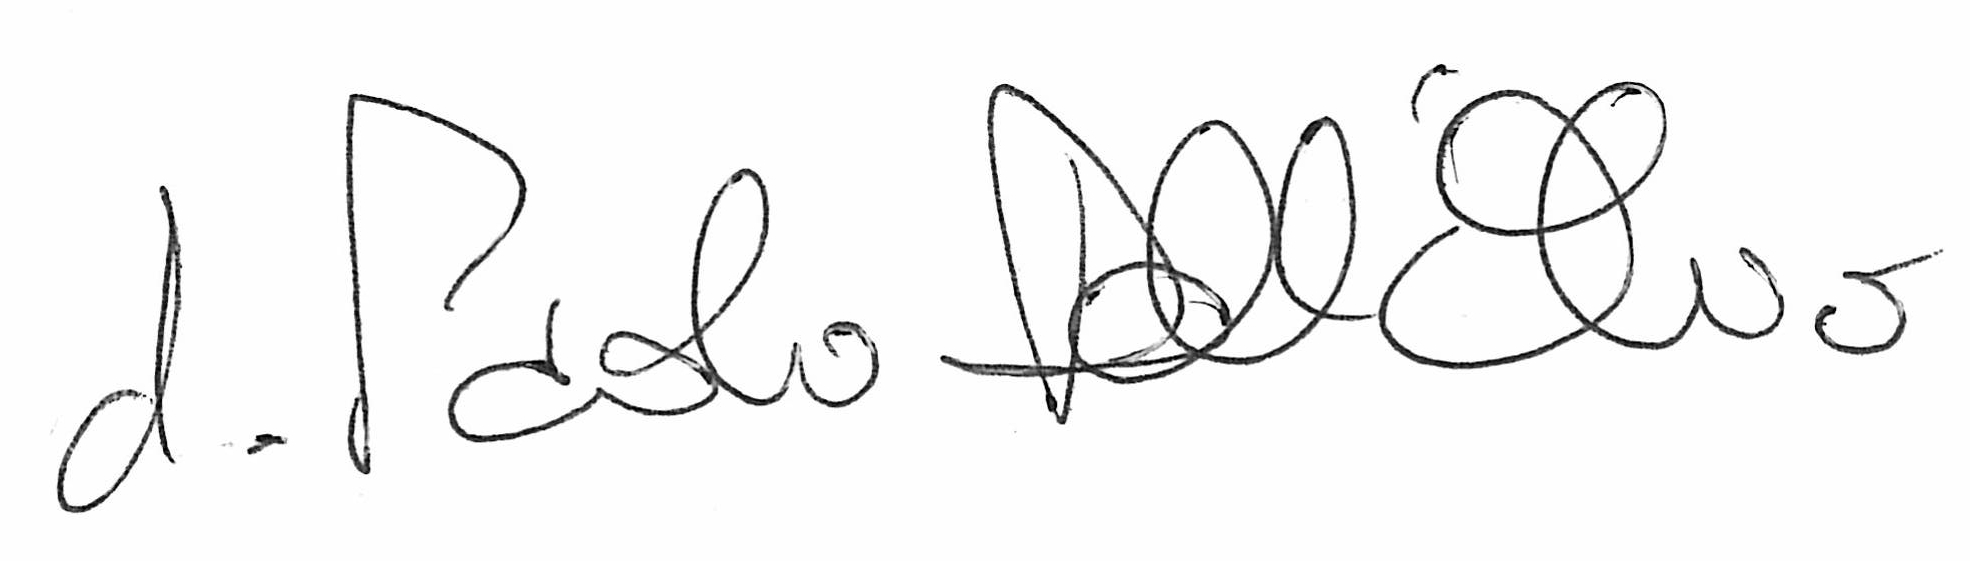 d. Paolo Dall'Olio